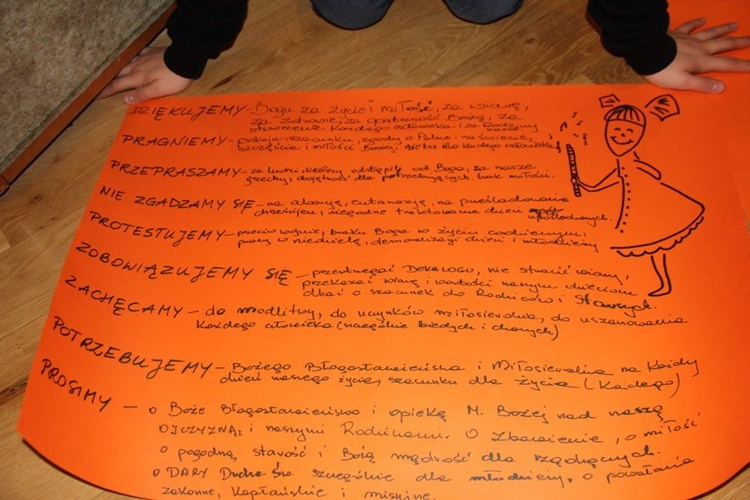 DZIĘKUJEMY - Bogu za życie i miłość, za wiarę,
za zdrowie, za opatrzność Bożą, za
stworzenie każdego człowieka i za Rodziny nasze
PRAGNIEMY - pokoju, szacunku, zgody w Polsce i na świecie,
szczęścia i miłości Bożej, nieba dla każdego człowieka
PRZEPRASZAMY - za ludzi którzy odstąpili od Boga, za nasze
grzechy, obojętność dla potrzebujących, brak miłości.
NIE ZGADZAMY SIĘ - na aborcję, eutanazję, na prześladowanie
chrześcijan, niegodne traktowanie dzieci
PROTESTUJEMY - przeciw wojnie, braku Boga w życiu codziennym,
pracy w niedzielę, demoralizacji dzieci i młodzieży
ZOBOWIĄZUJEMY SIĘ - przestrzegać DEKALOGU, nie stracić wiary,
przekazać wiarę i wartości naszym dzieciom
dbać o szacunek do Rodziców i Starszych.
ZACHĘCAMY - do modlitwy, do uczynków miłosierdzia, do uszanowania
każdego człowieka (szczególnie biednych i chorych)
POTRZEBUJEMY - Bożego Błogosławieństwa i Miłosierdzia na każdy
dzień naszego życia, szacunku dla życia (każdego)
PROSIMY - o Boże Błogosławieństwo i opiekę M. Bożej nad naszą
OJCZYZNĄ i naszymi Rodzinami. O Zbawienie, o miłość
o pogodną starość i Bożą mądrość dla rządzących.
o DARY Ducha Św. szczególnie dla młodzieży, o powołania
zakonne, kapłańskie i misyjne.